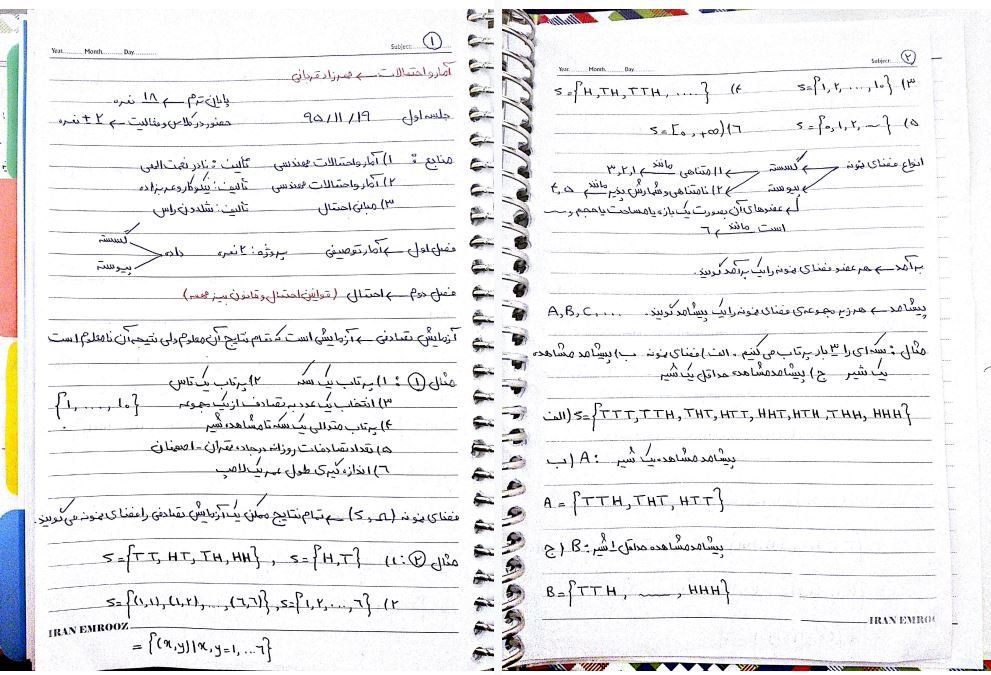 Year............ Month............ Day............ Subject: ①
آمار و احتمالات ← بهزاد قربانی
پایان ترم ← ۱۸ نمره
جلسه اول ۹۵/۱۱/۱۹ حضور در کلاس و فعالیت ← ۲± نمره
منابع: ۱) آمار و احتمالات مهندسی تألیف: نادر نعمت الهی
۲) آمار و احتمالات مهندسی تألیف: نیکوکار و عربزاده
۳) مبانی احتمال تألیف: شلدون راس
فصل اول ← آمار توصیفی پروژه: ۲ نمره داده گسسته
پیوسته
فصل دوم ← احتمال (قوانین احتمال و قانون بیز مهمه)
آزمایش تصادفی ← آزمایشی است که تمام نتایج آن معلوم ولی نتیجه آن نامعلوم است
مثال ①: ۱) پرتاب یک سکه ۲) پرتاب یک تاس
۳) انتخاب یک عدد به تصادف از یک مجموعه {1, ..., 10}
۴) پرتاب متوالی یک سکه تا مشاهده شیر
۵) تعداد تصادفات روزانه در جاده تهران - اصفهان
۶) اندازه گیری طول عمر یک لامپ
فضای نمونه (S, Ω) ← تمام نتایج ممکن یک آزمایش تصادفی را فضای نمونه می گویند.
مثال ②: ۱) S={H,T} , S={TT, HT, TH, HH}
۲) S={1,2,...,6} , S={(1,1),(1,2),...,(6,6)}
IRAN EMROOZ
= {(x,y)|x,y=1,...6}
Year. Month. Day. Subject: ②
۳) S={1,2,...,10} ۴) S={H,TH,TTH,....}
۵) S={0,1,2,...} ۶) S=[0,+∞)
انواع فضای نمونه گسسته ۱) متناهی مانند ← ۱,۲,۳
پیوسته ۲) نامتناهی و شمارش پذیر مانند ← ۴,۵
عضوهای آن بصورت یک بازه یا مساحت یا حجم و ...
است مانند ← ۶
برآمد ← هر عضو فضای نمونه را یک برآمد گویند.
پیشامد ← هر زیر مجموعه ی فضای نمونه را یک پیشامد گویند. A,B,C,...
مثال: سکه ای را ۳ بار پرتاب می کنیم. الف) فضای نمونه ب) پیشامد مشاهده
یک شیر ج) پیشامد مشاهده حداقل یک شیر
الف) S={TTT,TTH,THT,HTT,HHT,HTH,THH,HHH}
ب) A: پیشامد مشاهده یک شیر
A={TTH,THT,HTT}
ج) B: پیشامد مشاهده حداقل ۱ شیر
B={TTH, ......, HHH}
IRAN EMRO